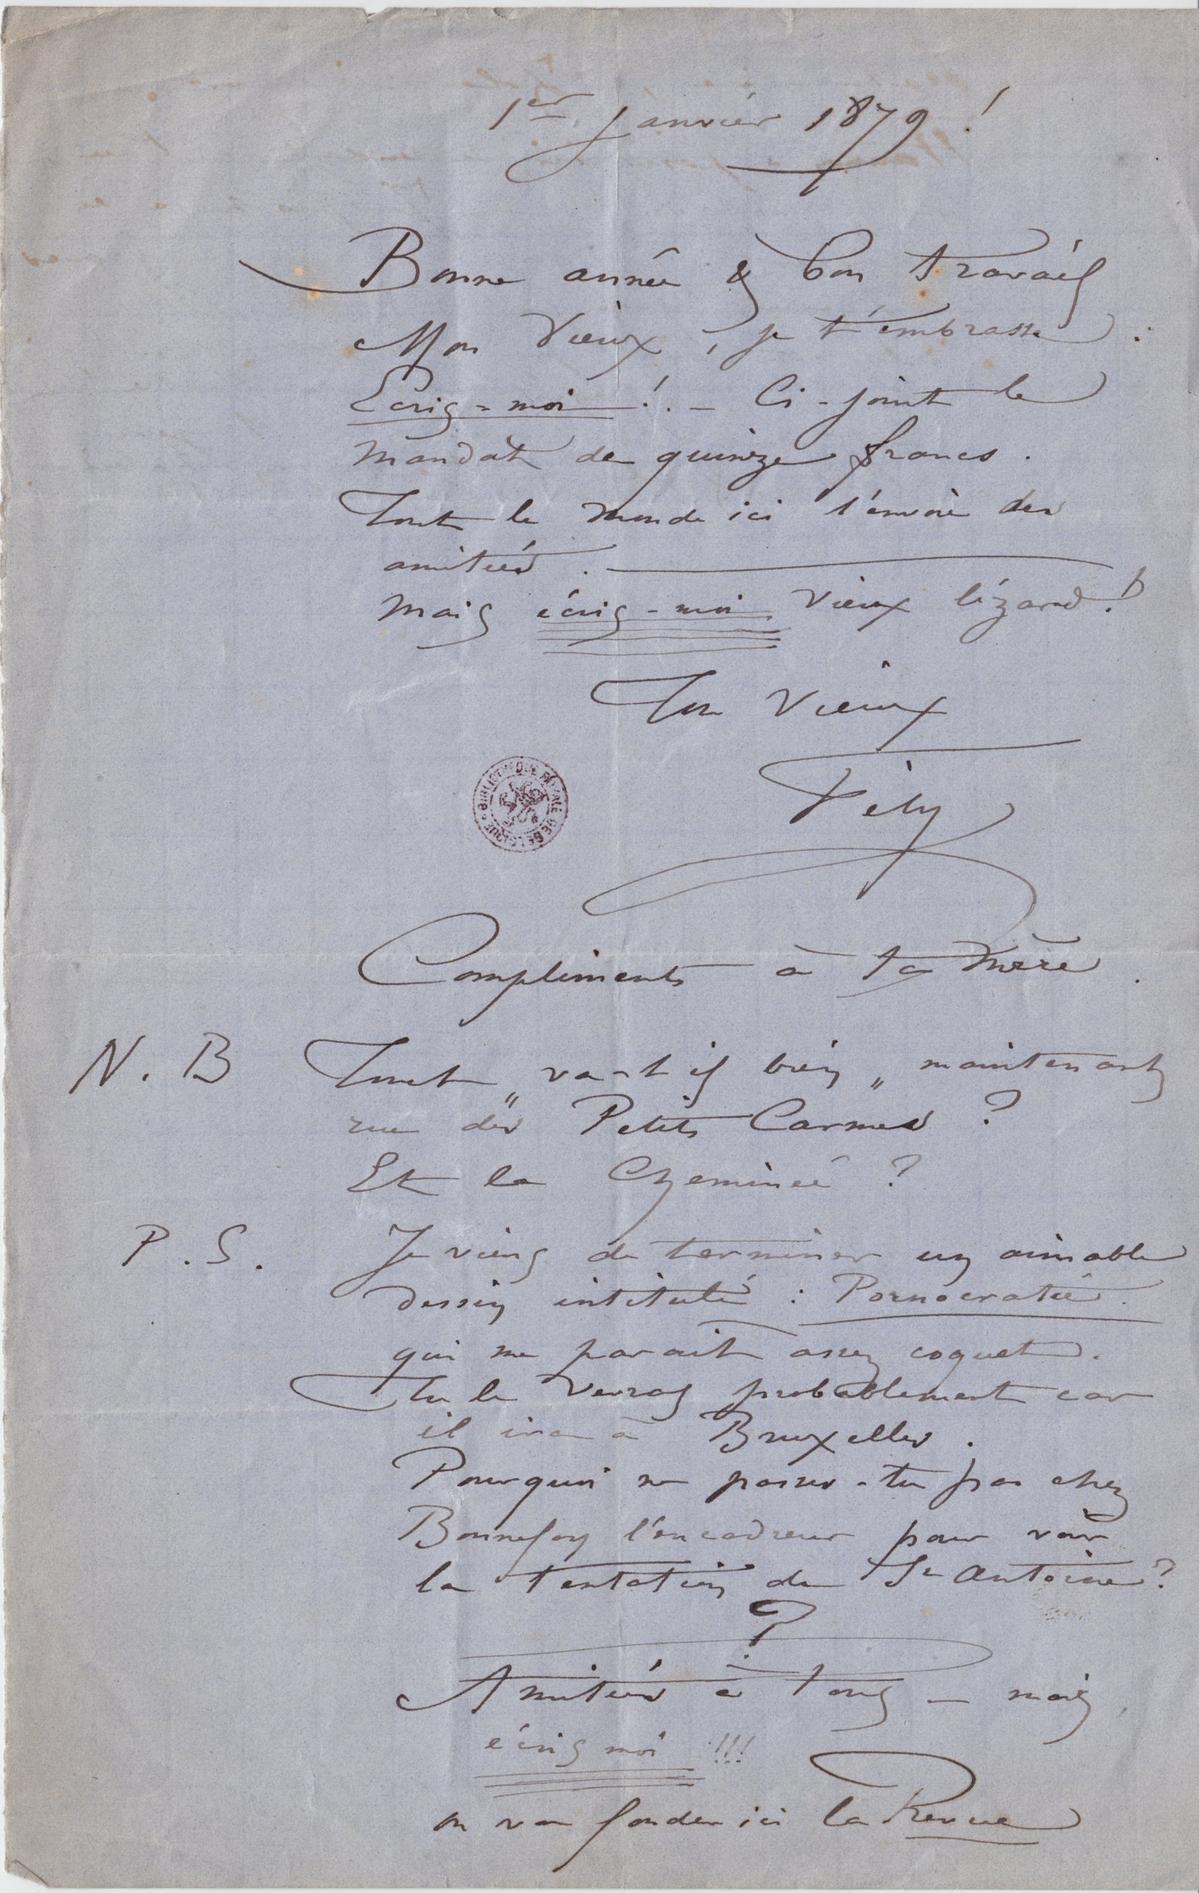 1er Janvier 1879 !
Bonne année & bon travail
Mon Vieux, je t'embrasse.
Ecris-moi !. — Ci-joint le
mandat de quinze francs.
Tout le monde ici t'envoie des
amitiés.
Mais écris-moi vieux lézard !
Ton Vieux
Fély
BIBLIOTHÈQUE ROYALE DE BELGIQUE
Compliments à ta mère.
N. B Tout „va-t-il bien„ maintenant
rue des Petits Carmes ?
Et la Cheminée ?
P. S. Je viens de terminer un aimable
dessin intitulé : Pornocratie.
qui me parait assez coquet.
Tu le verras probablement car
il ira à Bruxelles.
Pourquoi ne passes-tu pas chez
Bonnefoy l'encadreur pour voir
la tentation de St Antoine ?
?
Amitiés à tous — mais
écris moi !!!
on va fonder ici la Revue